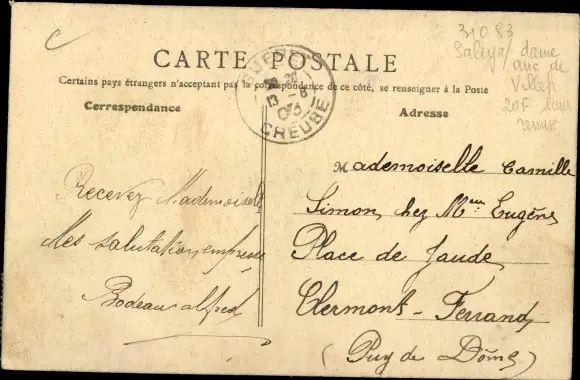 C
31083
dame
anc de
20F sans
remise
CARTE POSTALE
Certains pays étrangers n'acceptant pas la correspondance de ce côté, se renseigner à la Poste
Correspondance
Adresse
GUERET
13 - 8
CREUSE
Recevez Mademoiselle
Mes salutations empressées
Bodeau alfred
Mademoiselle Camille
Simon, chez Mme Eugène
Place de Jaude,
Clermont-Ferrand
(Puy de Dôme)